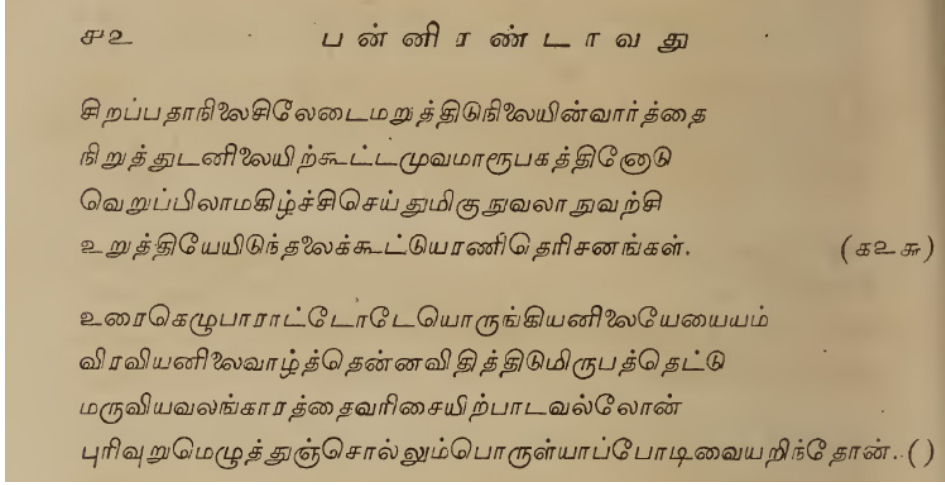 ௯௨ பன்னிரண்டாவது
சிறப்பதாநிலைசிலேடைமறுத்திடுநிலையின்வார்த்தை
நிறுத்துடனிலையிற்கூட்டமுவமாரூபகத்தினோடு
வெறுப்பிலாமகிழ்ச்சிசெய்துமிகுநுவலாநுவற்சி
உறுத்தியேயிடுந்தலைக்கூட்டுயரணிதெரிசனங்கள். (௧௨௯)
உரைகெழுபாராட்டோடேயொருங்கியனிலையேயையம்
விரவியனிலைவாழ்த்தென்னவிதித்திடுமிருபத்தெட்டு
மருவியவலங்காரத்தைவரிசையிற்பாடவல்லோன்
புரிவுறுமெழுத்துஞ்சொல்லும்பொருள்யாப்போடிவையறிந்தோன். ()